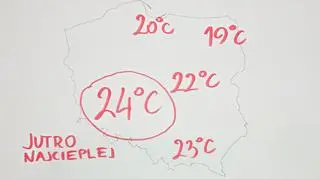 20°C
19°C
22°C
24°C
23°C
JUTRO
NAJCIEPLEJ